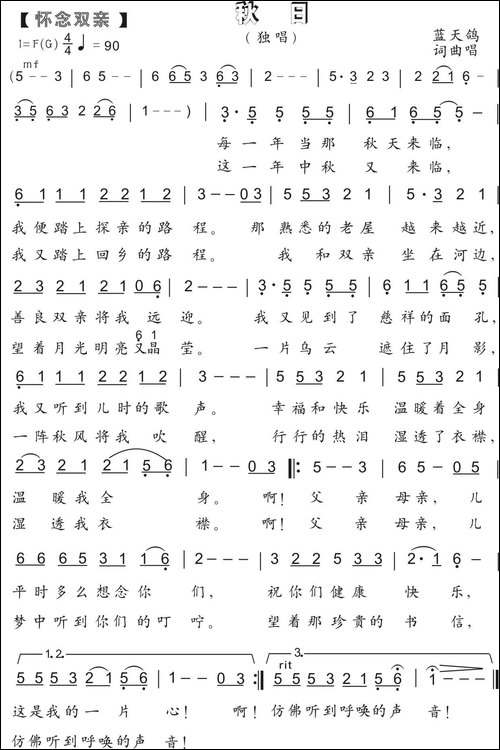 【怀念双亲】
秋 日
(独唱)
蓝天鸽
词曲唱
1=F(G) 4/4 ♩=90
mf
(5 - - 3 | 6 - - - | 6 6 5 3 6 3 | 2 - - - | 5· 3 2 3 | 2 2 1 6 - |
3 5 6 3 2 2 6 | 1 - - - ) | 3· 5 5 5 5 | 6 1 6 5 5 - |
每一年当那 秋天来临,
这一年中秋 又 来临,
6 1 1 1 2 2 1 2 | 3 - - 0 3 | 5 5 3 2 1 | 5· 3 2 1 |
我便踏上探亲的路 程。 那 熟悉的老屋 越来越近,
我又踏上回乡的路 程。 我 和双亲 坐在河边,
2 3 2 2 1 2 1 0 6 | 2 - - - | 3· 5 5 5 5 | 6 1 1 6 5 5 |
善良双亲将我 远 迎。 我又见到了 慈祥的面孔,
6 1
望着月光明亮又晶 莹。 一片乌云 遮住了月影,
6 1 1 1 2 2 1 2 | 3 - - - | 5 5 3 2 1 | 5 5 3 2 1 |
我又听到儿时的歌 声。 幸福和快乐 温暖着全身
一阵秋风将我 吹 醒, 行行的热泪 湿透了衣襟,
2 3 2 1 2 1 5 6 | 1 - - 0 3 | 5 - - 3 | 6 5 - 0 5 |
温 暖我全 身。 啊! 父 亲母亲,儿
湿 透我衣 襟。 啊! 父 亲母亲,儿
6 6 6 5 3 1 1 6 | 2 - - - | 3 2 2 5 3 3 | 2· 1 6 - |
平时多么想念你 们, 祝你们健康 快 乐,
梦中听到你们的叮 咛。 望着那珍贵的 书 信,
1. 2.
3.
rit
5 5 5 3 2 2 1 5 6 | 1 - - 0 3 | 5 5 5 3 2 1 5 6 | 1 - - - |
这是我的一 片 心! 啊! 仿佛听到呼唤的声 音!
仿佛听到呼唤的声 音!